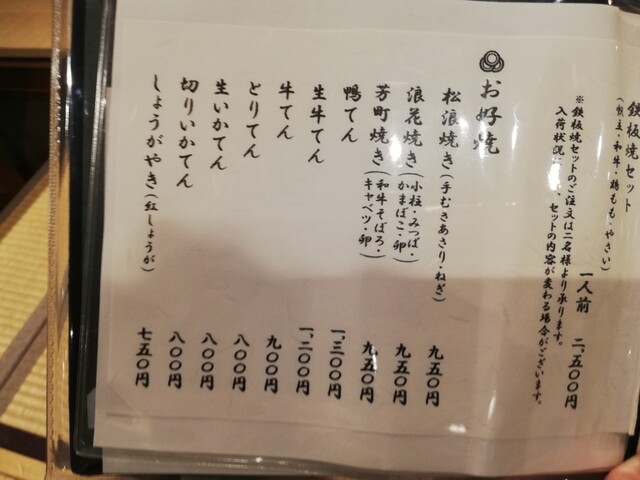 鉄板焼セット
一人前 二、五〇〇円
※鉄板焼セットのご注文は二名様より承ります。
入荷状況に セットの内容が変わる場合がございます。
お好焼
松浪焼き(手むきあさり・ねぎ) 九五〇円
浪花焼き(小柱・みつば・かまぼこ・卵) 九五〇円
芳町焼き(和牛そぼろ・キャベツ・卵) 九五〇円
鴨てん 一、三〇〇円
生牛てん 一、二〇〇円
牛てん 九〇〇円
とりてん 八〇〇円
生いかてん 八〇〇円
切りいかてん 八〇〇円
しょうがやき(紅しょうが) 七五〇円